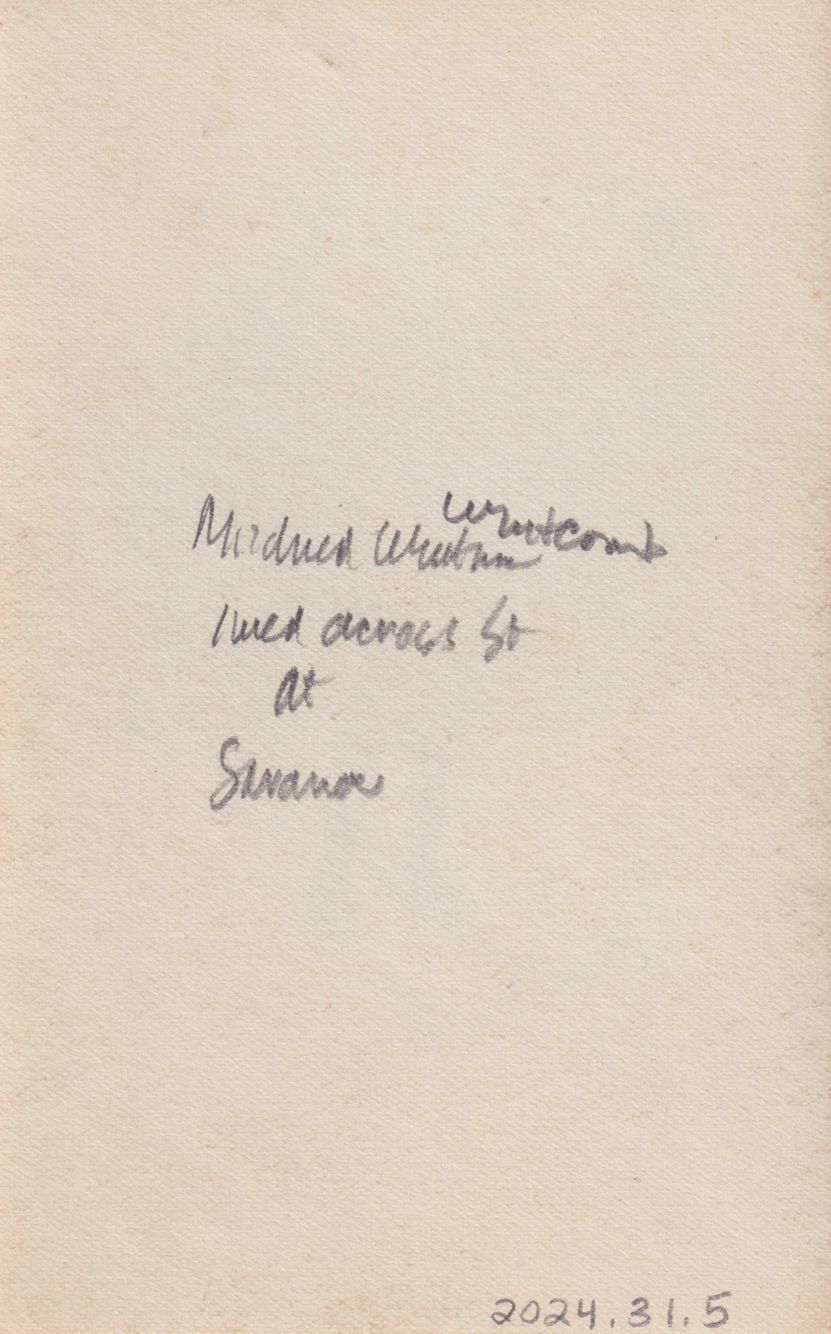 Whitcomb
Mildred
lived across St
At
2024.31.5